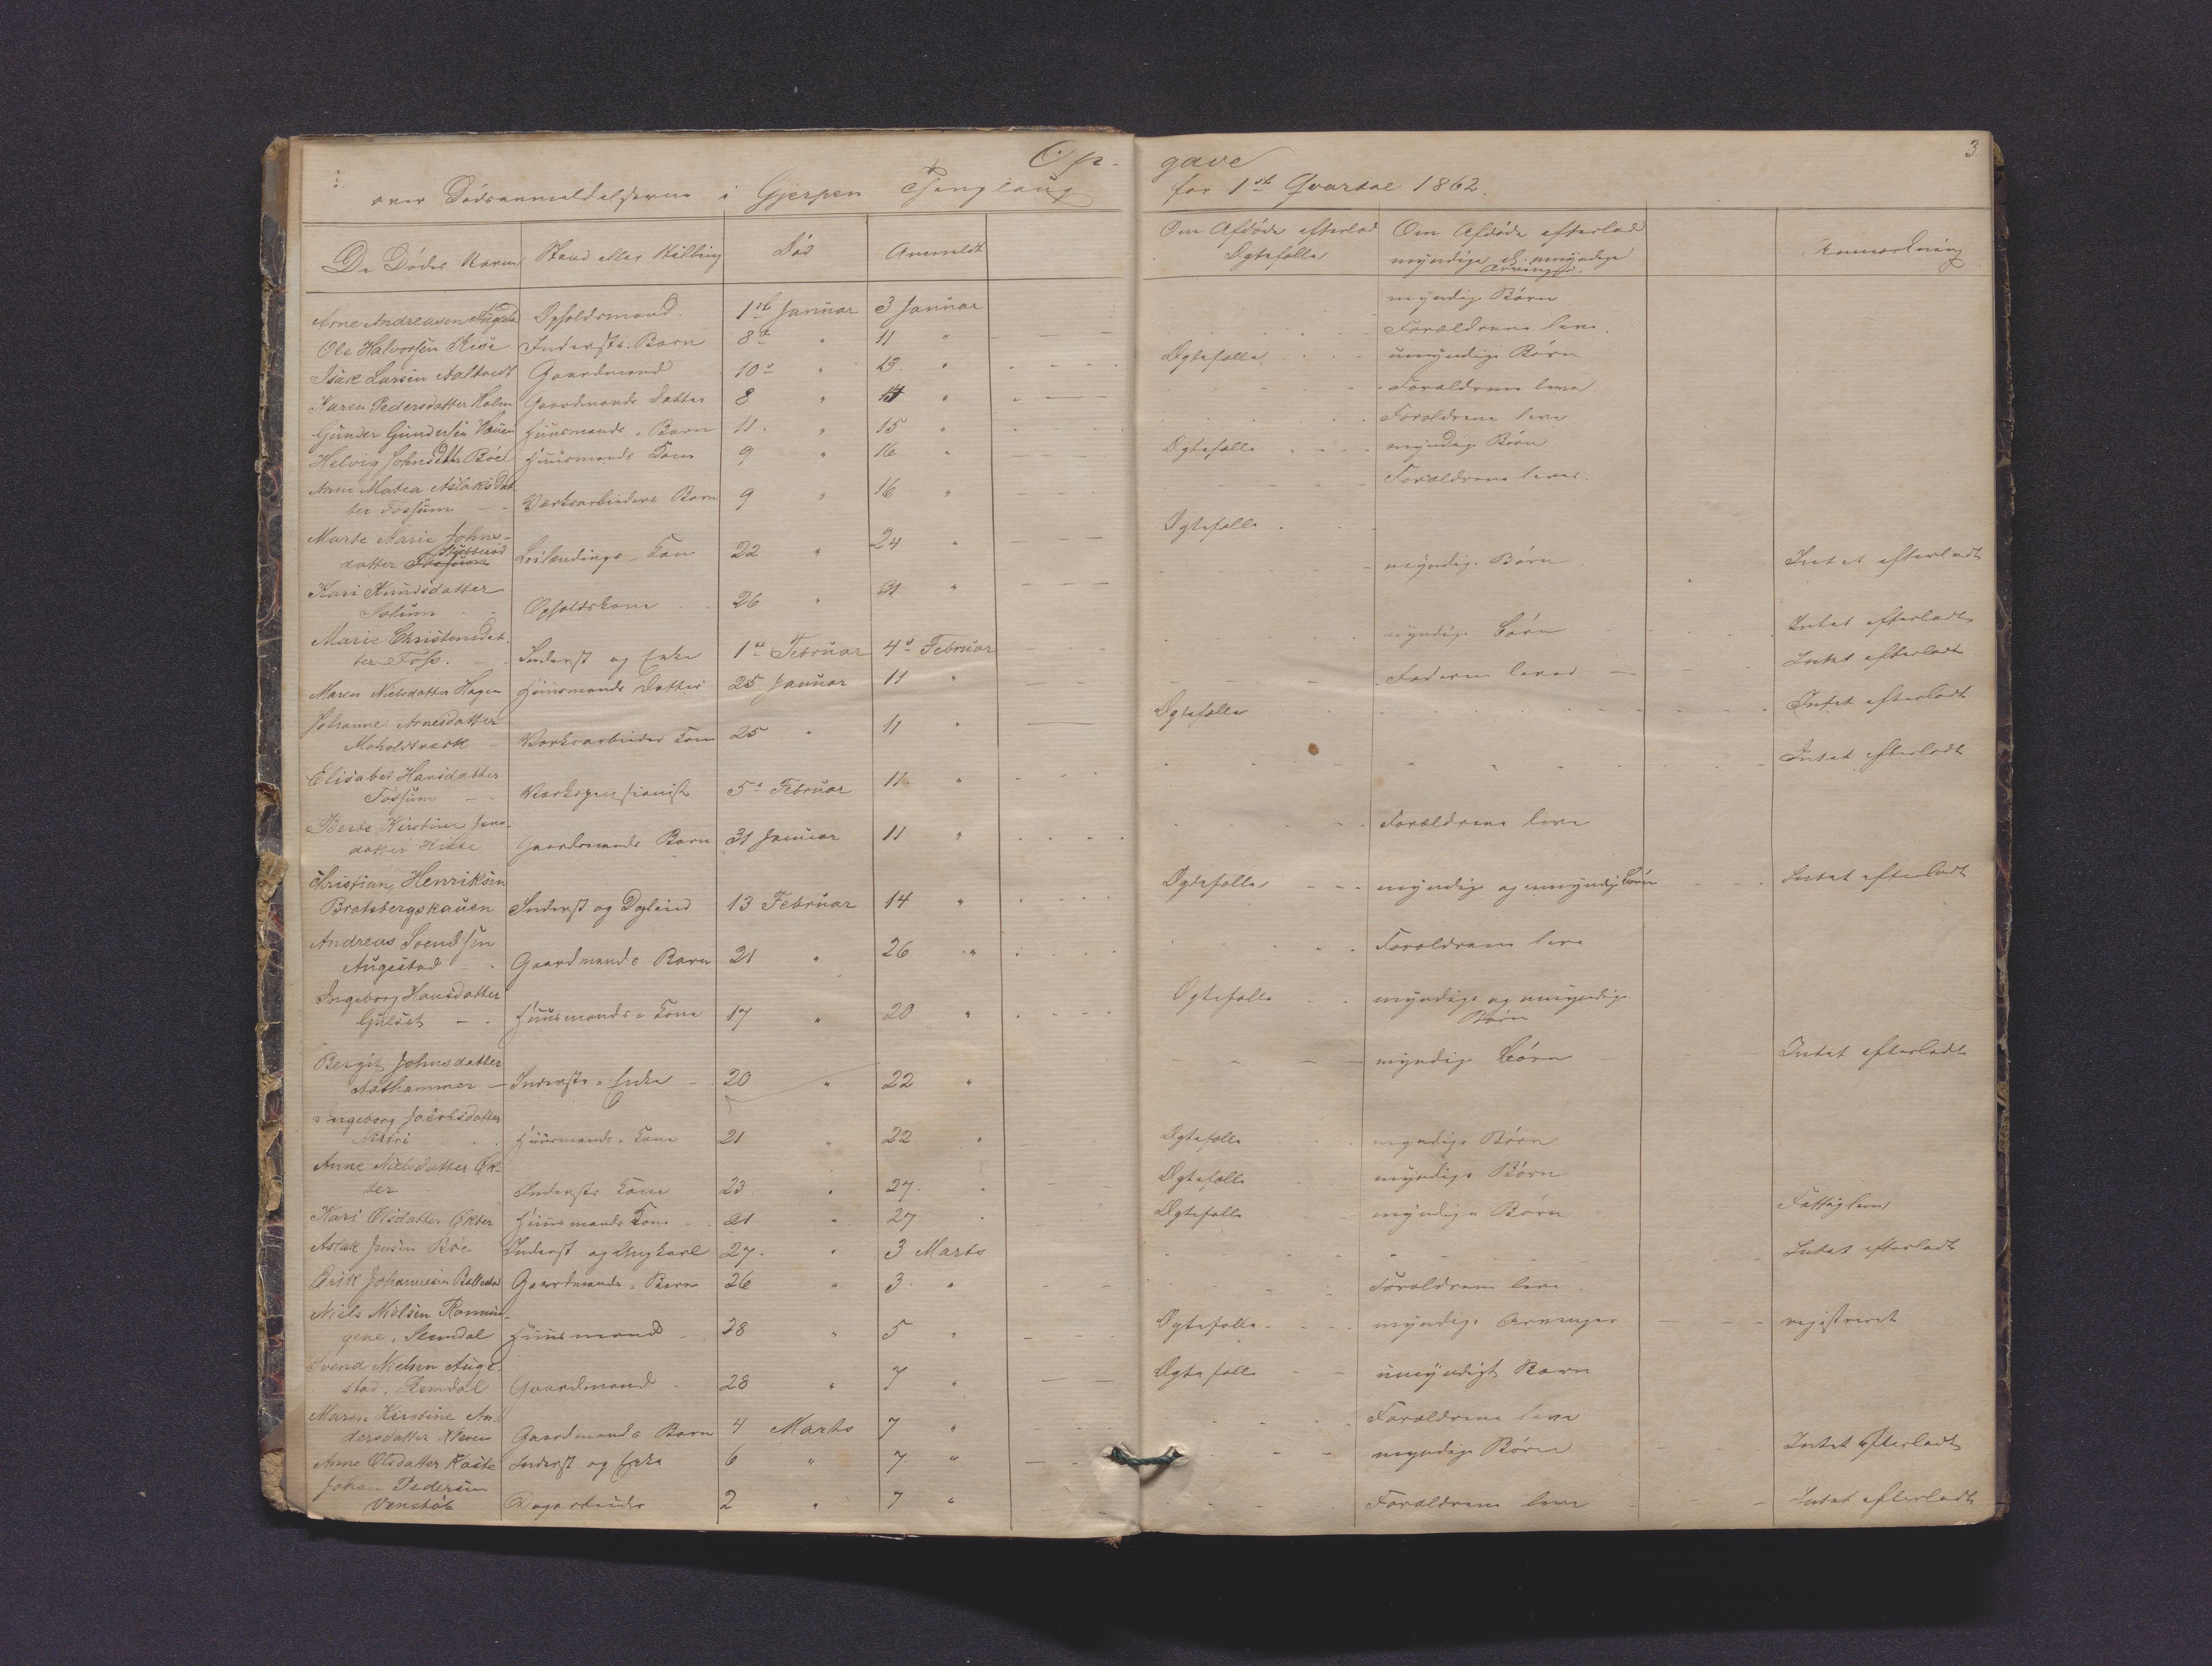 Op-
gave
3
over Dødsanmeldelserne i Gjerpen Thinglaug
for 1ste Qvartal 1862.
De Dødes Navne Stand eller Stilling Død Anmeldt Om Afdøde efterlod Ægtefælle Om Afdøde efterlod myndige el. umyndige Arvinger. Anmærkning
Arne Andreasen Opholdsmand. 1ste Januar 3 Januar myndige Børn
Ole Halvorsen Kise Indersts Barn 8de " 11 " Forældrene leve.
Isak Larsen Aaltvedt Gaardmand 10de " 13. " Ægtefælle umyndige Børn
Karen Pedersdatter Holm Gaardmands Datter 8 " " Forældrene leve
Gunder Gundersen Huusmands Barn 11. " 15 " Forældrene leve
Helvig Johnsdatter Bøe Huusmands Kone 9 " 16 " Ægtefælle myndige Børn
Anne Matea Aslaksdat-
ter Fossum Verksarbeiders Barn 9 " 16 " Forældrene lever.
Marte Marie Johns-
datter Leilændings Kone 22 " 24 " Ægtefælle
Kari Knudsdatter
Solum Opholdskone 26 " 31 " myndige Børn Intet efterladt
Marie Christensdat-
ter Foss. Inderst og Enke 1ste Februar 4de Februar myndige Børn Intet efterladt
Maren Nielsdatter Hagen Huusmands Datter 25 Januar 11 " Faderen lever Intet efterladt
Johanne Arnesdatter
Moholdtværk Verksarbeider Kone 25 " 11 " Ægtefælle Intet efterladt
Elisabet Hansdatter
Fossum Verkspensionist 5te Februar 11 " Intet efterladt
Berte Kirstine Jens-
datter Gaardmands Barn 31 Januar 11 " Forældrene leve
Christian Henriksen
Bratsbergskaaen Inderst og 13 Februar 14 " Ægtefælle myndige og umyndig Børn Intet efterladt
Andreas Svendsen
Augestad Gaardmands Barn 21 " 26 " Forældrene leve
Ingeborg Hansdatter
Gulset Huusmands Kone 17 " 20 " Ægtefælle myndige og umyndige
Børn
Bergit Johnsdatter
Aathammer Indersts Enke 20 " 22 " myndige Børn Intet efterladt
Ingeborg Jacobsdatter
Huusmands Kone 21 " 22 " Ægtefælle myndige Børn
Anne Nielsdatter Øk-
ter Indersts Kone 23 " 27. " Ægtefælle myndige Børn
Kari Olsdatter Økter Huusmands Kone 21 " 27 " Ægtefælle myndige Børn Fattiglem
Aslak Jensen Bøe Inderst og Ungkarl 27. " 3 Marts Intet efterladt
Erik Johannesen Ballestad Gaardmands Barn 26 " 3. " Forældrene leve
Niels Nielsen Rønnin-
gene, Slemdal Huusmand 28 " 5 " Ægtefælle myndige Arvinger registreret
Svend Nielsen Auge-
stad, Gaardmand 28 " 7 " Ægtefælle umyndigt Barn
Maren Kirstine An-
dersdatter Gaardmands Barn 4 Marts 7 " Forældrene leve
Anne Olsdatter Kaasa Inderst og Enke 6 " 7 " myndige Børn Intet efterladt
Johan Pedersen
Venstøb Dagarbeider 2 " 7 " Forældrene leve Intet efterladt